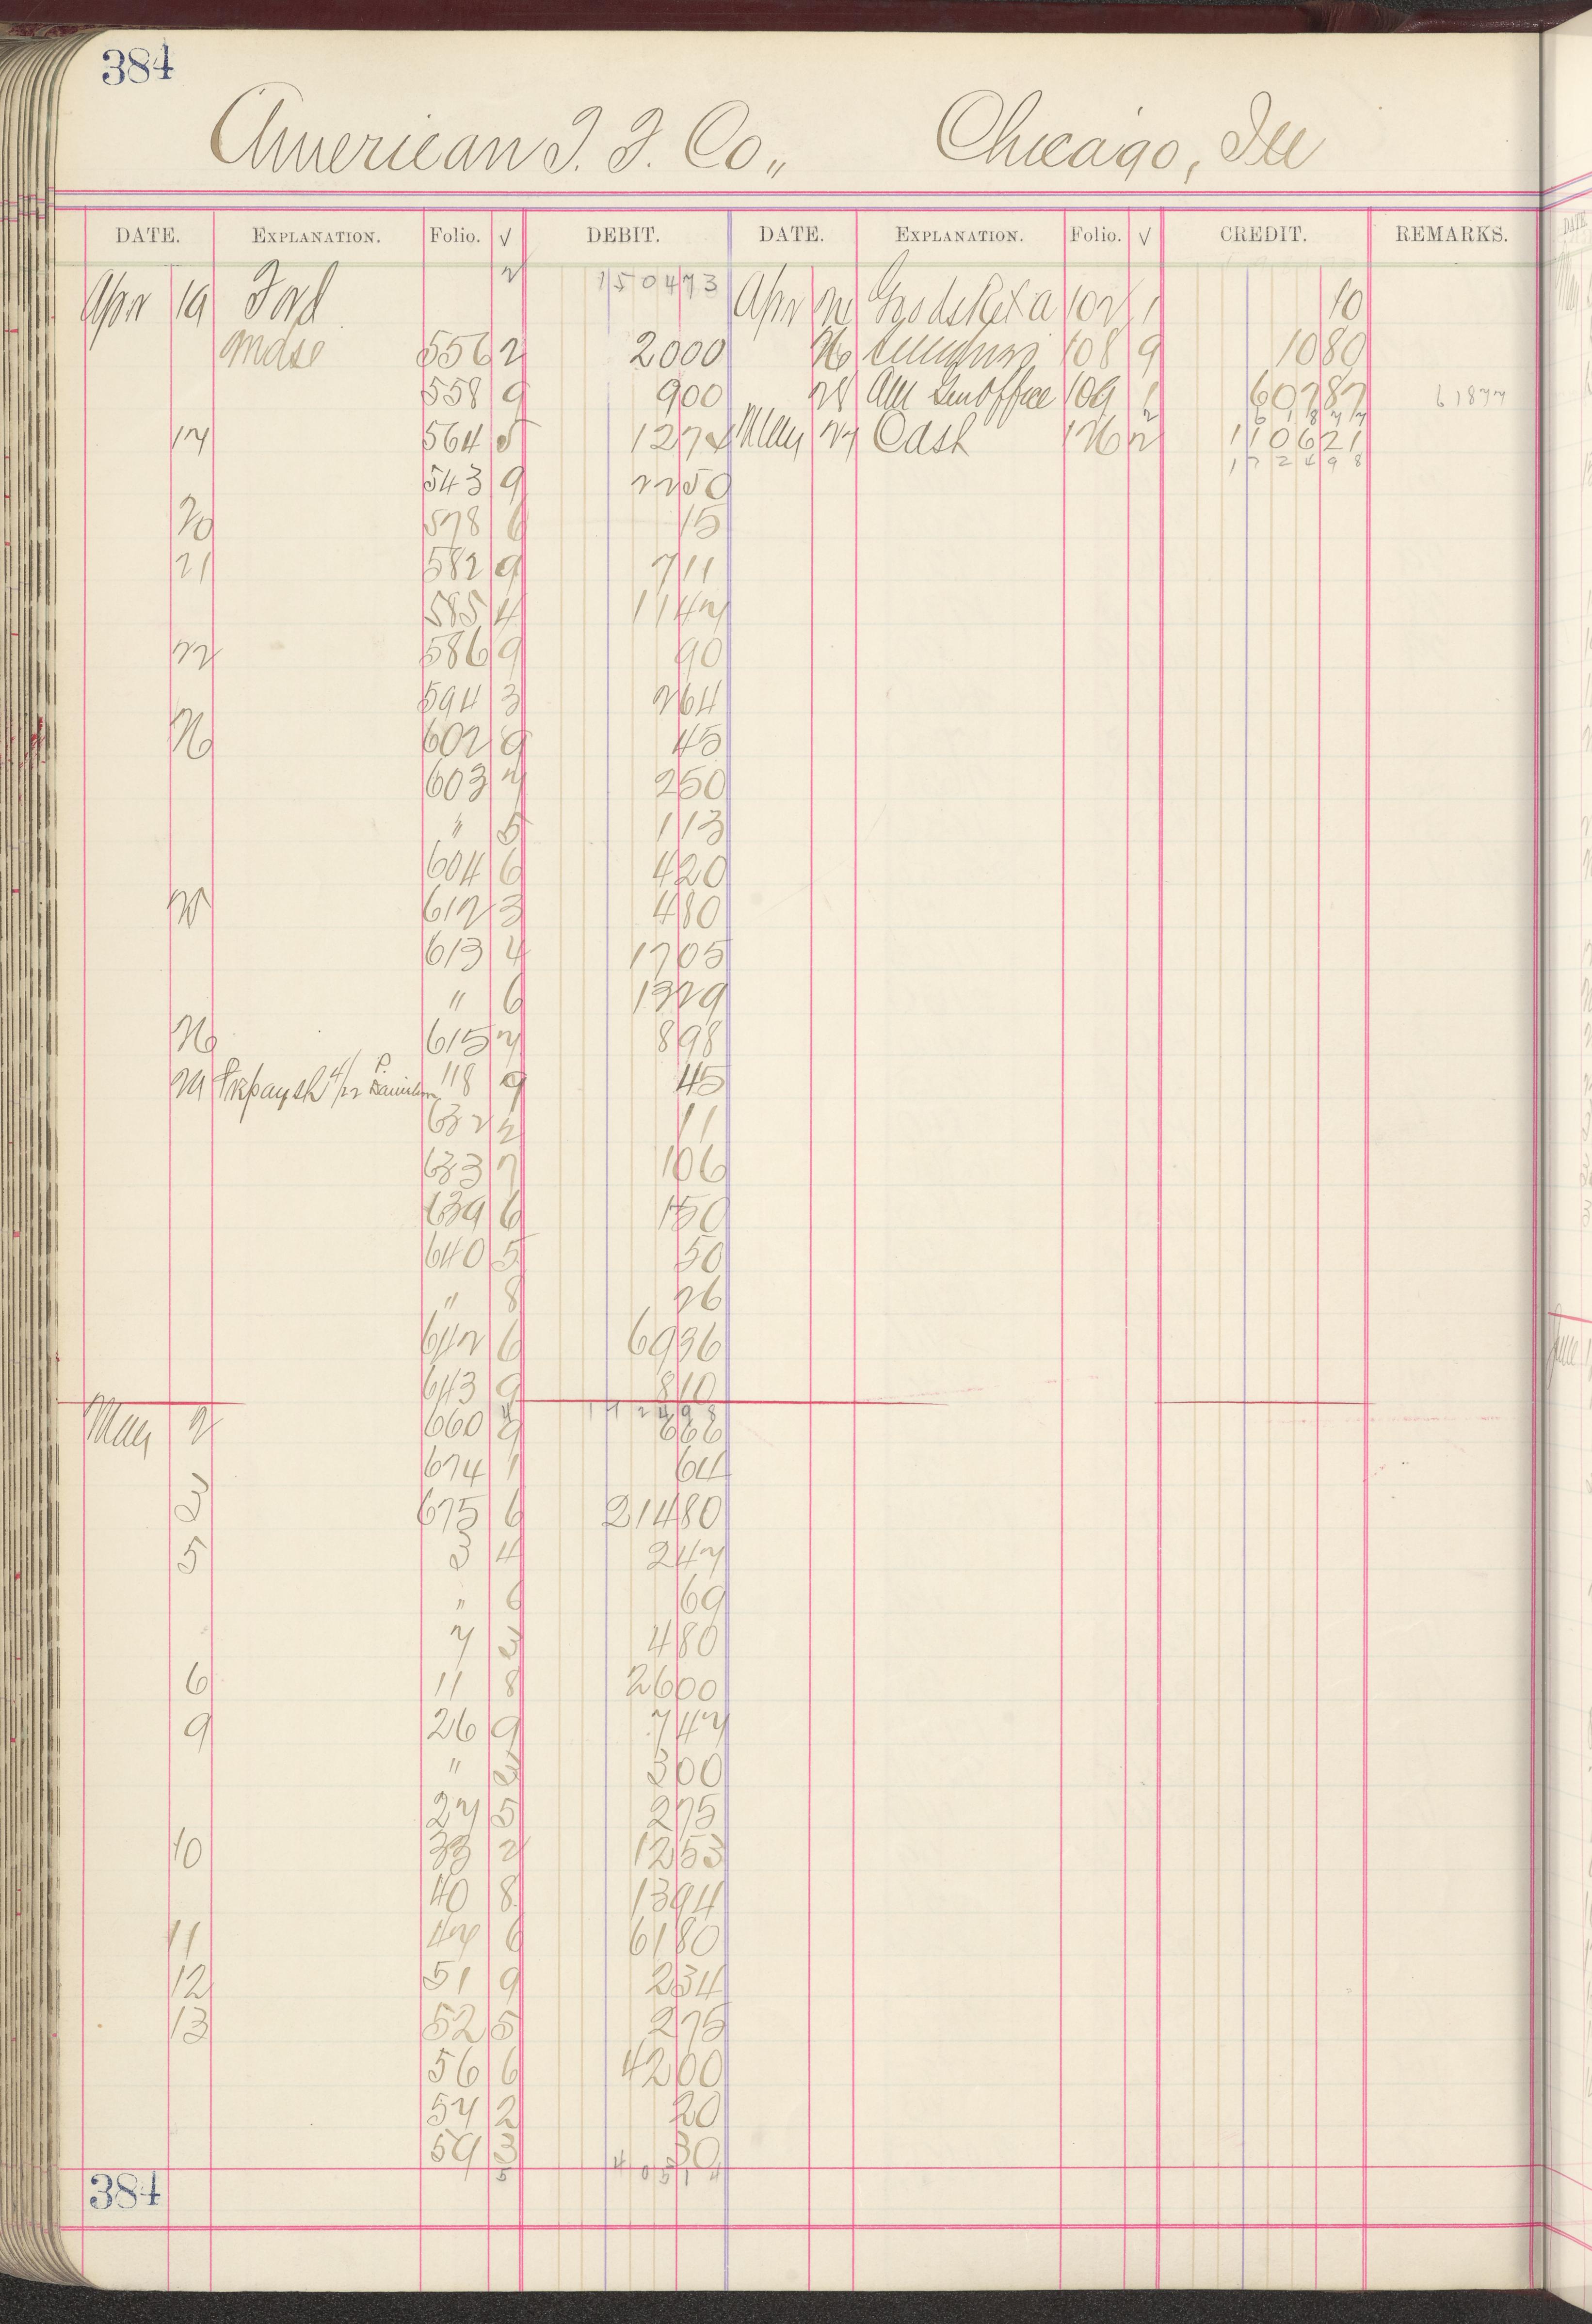 384
American T. F. Co., Chicago, Ill
DATE. EXPLANATION. Folio. √ DEBIT. DATE. EXPLANATION. Folio. √ CREDIT. REMARKS.
Apr 19 Ford 2 150473 Apr 102 1 10
Mdse 556 2 2000 26 108 9 1080
558 9 900 28 Am Gen Office 109 1 60787 61877
564 5 May 27 Cash 126 2 110621
543 9 2250 172498
20 578 6 15
21 582 9 711
585 4 1147
22 586 9 90
594 3 264
602 9 45
603 7 250
" 5 113
604 6 420
612 3 480
613 4 1705
" 6 1329
26 615 7 898
118 9 45
632 2 11
633 7 106
639 6 150
640 5 50
" 8 26
642 6 6936
643 9 810
172498
May 2 660 9 666
674 1 64
3 675 6 21480
5 3 4 247
" 6 69
7 3 480
6 11 8 2600
9 26 9 747
" 3 300
27 5 275
10 33 2 1253
40 8 1394
11 6 6180
12 51 9 234
13 52 5 275
56 6 4200
57 2 20
59 3 30
384